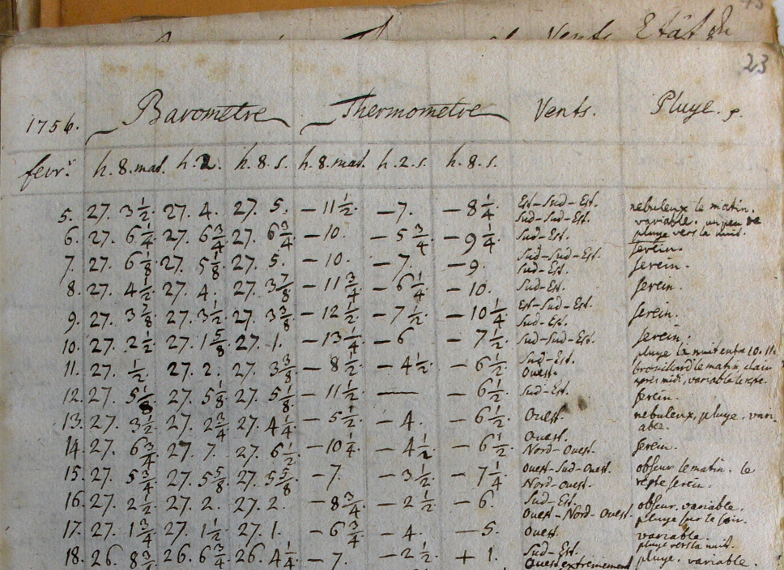 Vents. Etât du
23
1756. Barometre Thermometre Vents. Pluye. s.
fevr.r h. 8. mat. h. 2. h. 8. s. h. 8. mat. h. 2. s. h. 8. s.
5. 27. 3 1/2 27. 4. 27. 5. - 11 1/2. - 7. - 8 1/4 Est-Sud-Est. Sud-Sud-Est. nebuleux le matin. variable. un peu de
6. 27. 6 1/4 27. 6 3/4 27. 6 3/4 - 10. - 5 3/4 - 9 1/4 Sud-Est. pluye vers la nuit. serein.
7. 27. 6 1/8 27. 5 1/8 27. 5. - 10. - 7. - 9. Sud-Sud-Est. Sud-Est. serein.
8. 27. 4 1/2 27. 4. 27. 3 7/8 - 11 3/4 - 6 1/4 - 10. Sud-Est. serein.
9. 27. 3 3/8 27. 3 1/2 27. 3 3/8 - 12 1/2 - 7 1/2 - 10 1/4 Est-Sud-Est. Sud-Est. serein.
10. 27. 2 1/2 27. 1 5/8 27. 1. - 13 1/4 - 6 - 7 1/2. Sud-Sud-Est. serein. pluye la nuit
11. 27. 1/2. 27. 2. 27. 3 3/8 - 8 1/2 - 4 1/2. - 6 1/2. Sud-Est. Ouest. brouillard le matin, clair après midi, variable le reste.
12. 27. 5 1/8 27. 5 1/8 27. 5 1/8 - 11 1/2 — - 6 1/2. Sud-Est. serein.
13. 27. 3 1/2 27. 2 3/4 27. 4 1/4 - 5 1/2 - 4. - 6 1/2. Ouest. nebuleux, pluye. variable.
14. 27. 6 3/4 27. 7. 27. 6 1/2 - 10 1/4 - 4 1/2 - 6 1/2. Ouest. Nord-Ouest. serein.
15. 27. 5 3/4 27. 5 5/8 27. 5 5/8 - 7. - 3 1/2 - 7 1/4 Ouest-Sud-Ouest. Nord-Ouest. obscur le matin. le reste serein.
16. 27. 2 1/2 27. 2. 27. 2. - 8 3/4 - 2 1/2 - 6. Sud-Est. Ouest-Nord-Ouest. obscur, variable. pluye sur le soir.
17. 27. 1 3/4 27. 1 1/2 27. 1. - 6 3/4 - 4. - 5. Ouest. variable. pluye vers la nuit.
18. 26. 8 3/4 26. 6 3/4 26. 4 1/4 - 7. - 2 1/2 + 1. Sud-Est. Ouest extrêmement pluye. variable.